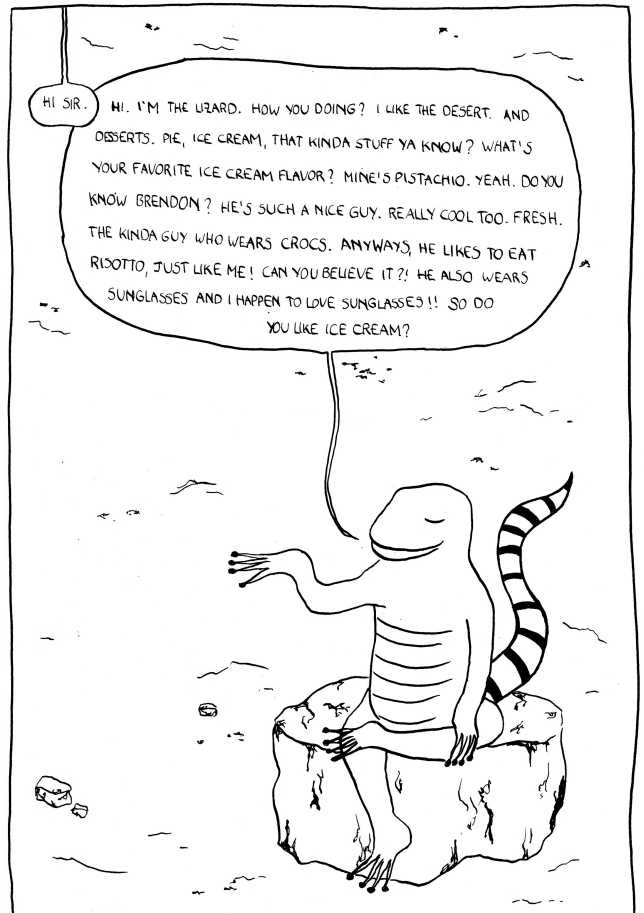 HI SIR.
HI. I'M THE LIZARD. HOW YOU DOING? I LIKE THE DESERT. AND
DESSERTS. PIE, ICE CREAM, THAT KINDA STUFF YA KNOW? WHAT'S
YOUR FAVORITE ICE CREAM FLAVOR? MINE'S PISTACHIO. YEAH. DO YOU
KNOW BRENDON? HE'S SUCH A NICE GUY. REALLY COOL TOO. FRESH.
THE KINDA GUY WHO WEARS CROCS. ANYWAYS, HE LIKES TO EAT
RISOTTO, JUST LIKE ME! CAN YOU BELIEVE IT?! HE ALSO WEARS
SUNGLASSES AND I HAPPEN TO LOVE SUNGLASSES!! SO DO
YOU LIKE ICE CREAM?